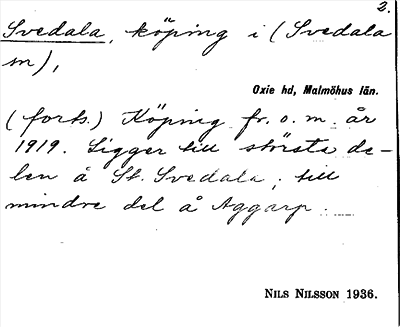 2.
Svedala, köping i (Svedala
sn),
Oxie hd, Malmöhus län.
(forts.) Köping fr. o. m. år
1919. Ligger till största de-
len å St. Svedala; till
mindre del å Aggarp.
NILS NILSSON 1936.